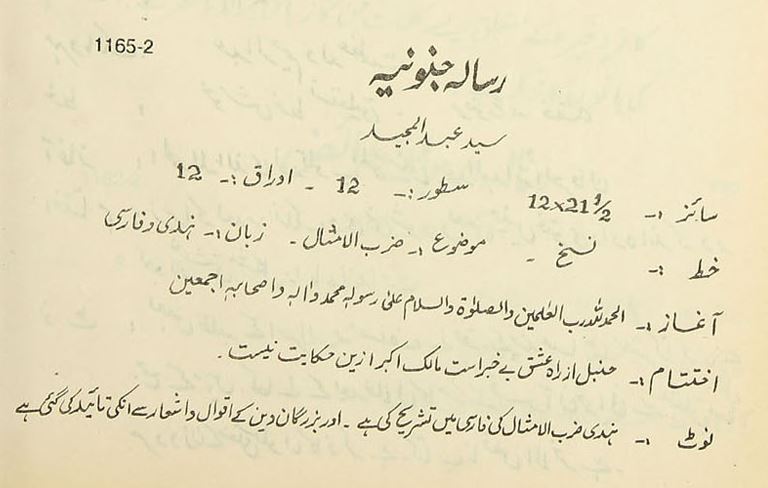 1165-2
رسالہ جنونیہ
سید عبدالمجید
سائز :۔ 12x21½ سطور :۔ 12 ۔ اوراق :۔ 12
خط :۔ نسخ ۔ موضوع :۔ ضرب الامثال ۔ زبان :۔ ہندی و فارسی
آغاز :۔ الحمد للہ رب العٰلمین والصلوٰۃ والسلام علیٰ رسولہ محمد واٰلہ واصحابہ اجمعین
اختتام :۔ حنبل از راہ عشق بے خبر است مالک اکبر ازین حکایت نیست ۔
نوٹ :۔ ہندی ضرب الامثال کی فارسی میں تشریح کی ہے ۔ اور بزرگان دین کے اقوال واشعار سے انکی تائید کی گئی ہے